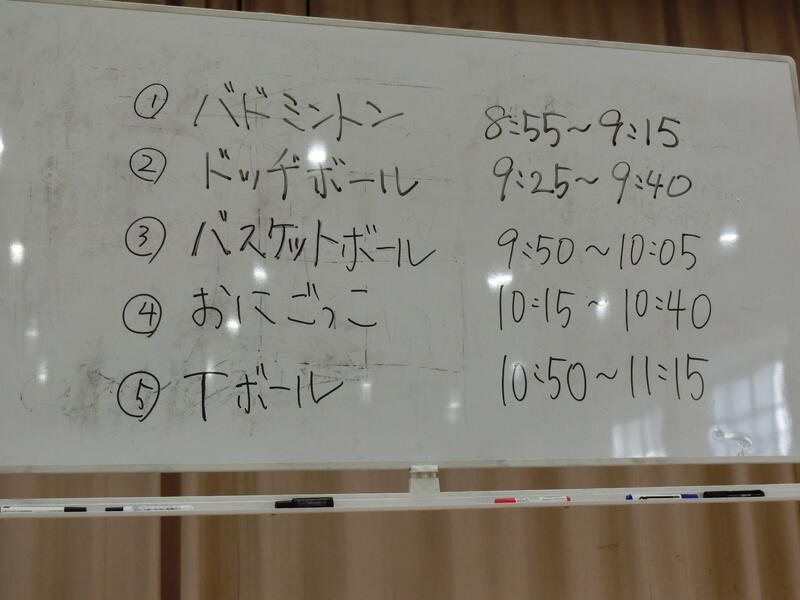 ① バドミントン 8:55〜9:15
② ドッヂボール 9:25〜9:40
③ バスケットボール 9:50〜10:05
④ おにごっこ 10:15〜10:40
⑤ Tボール 10:50〜11:15